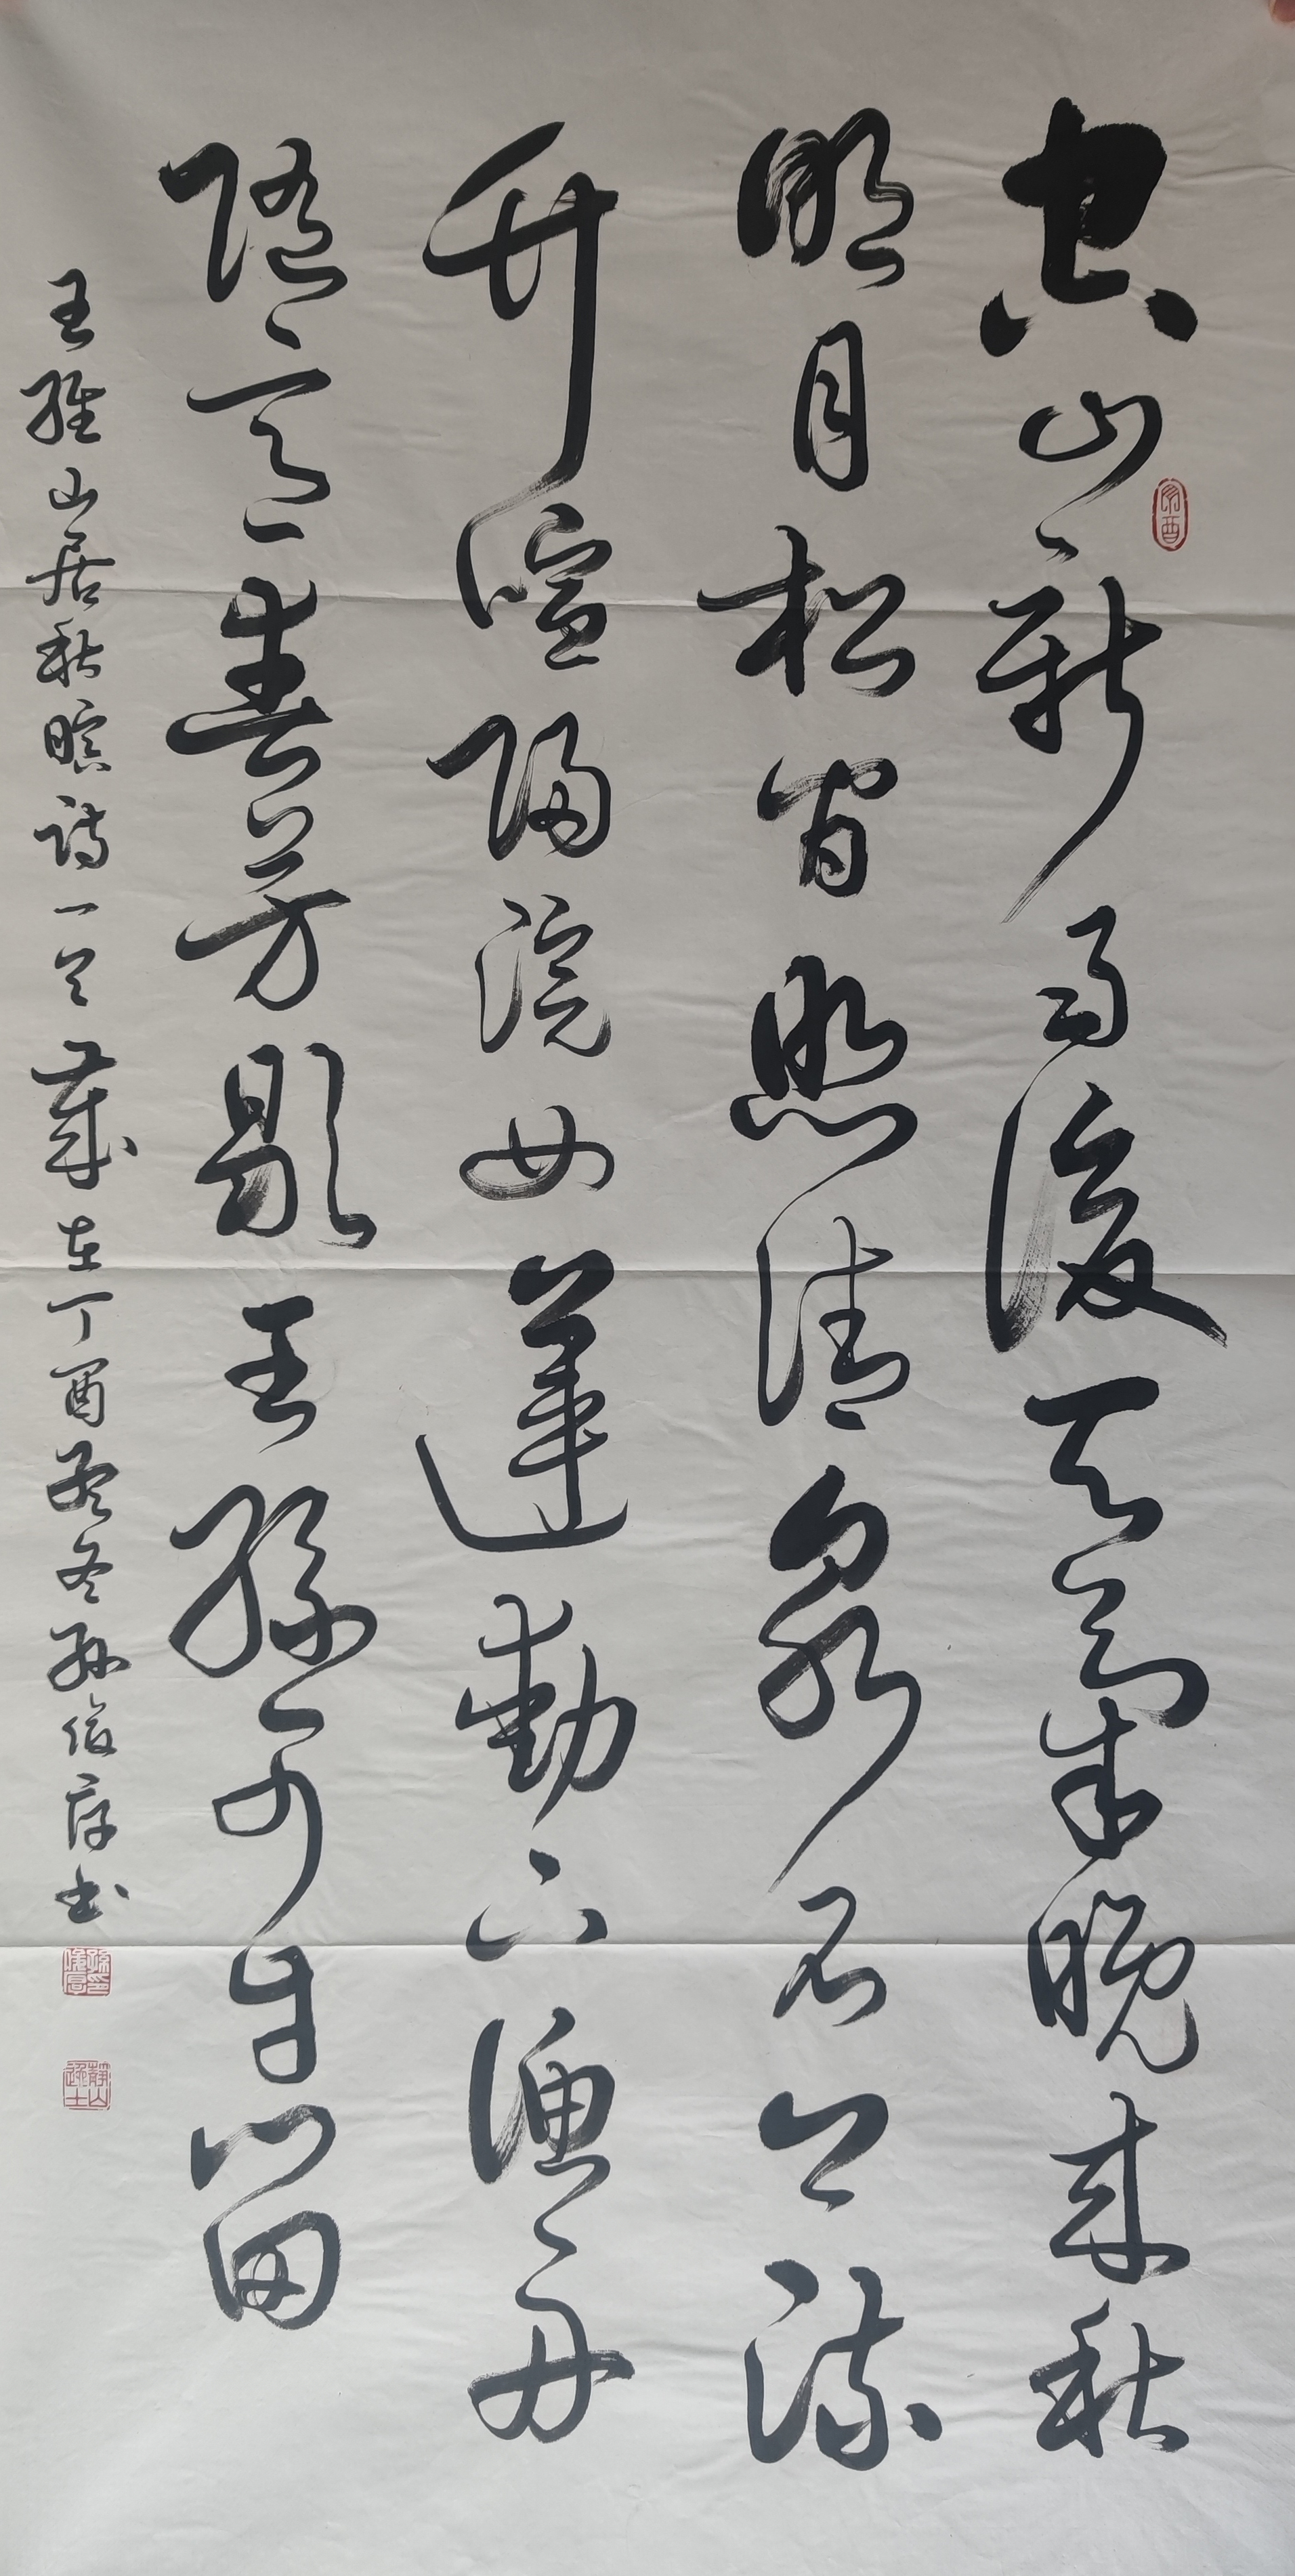 空山新雨後天氣晚來秋
明月松間照清泉石上流
竹喧歸浣女蓮動下漁舟
隨意春芳歇王孫自可留
王維山居秋暝詩一首歲在丁酉孟冬孫俊序书
丁酉
靜山逸士